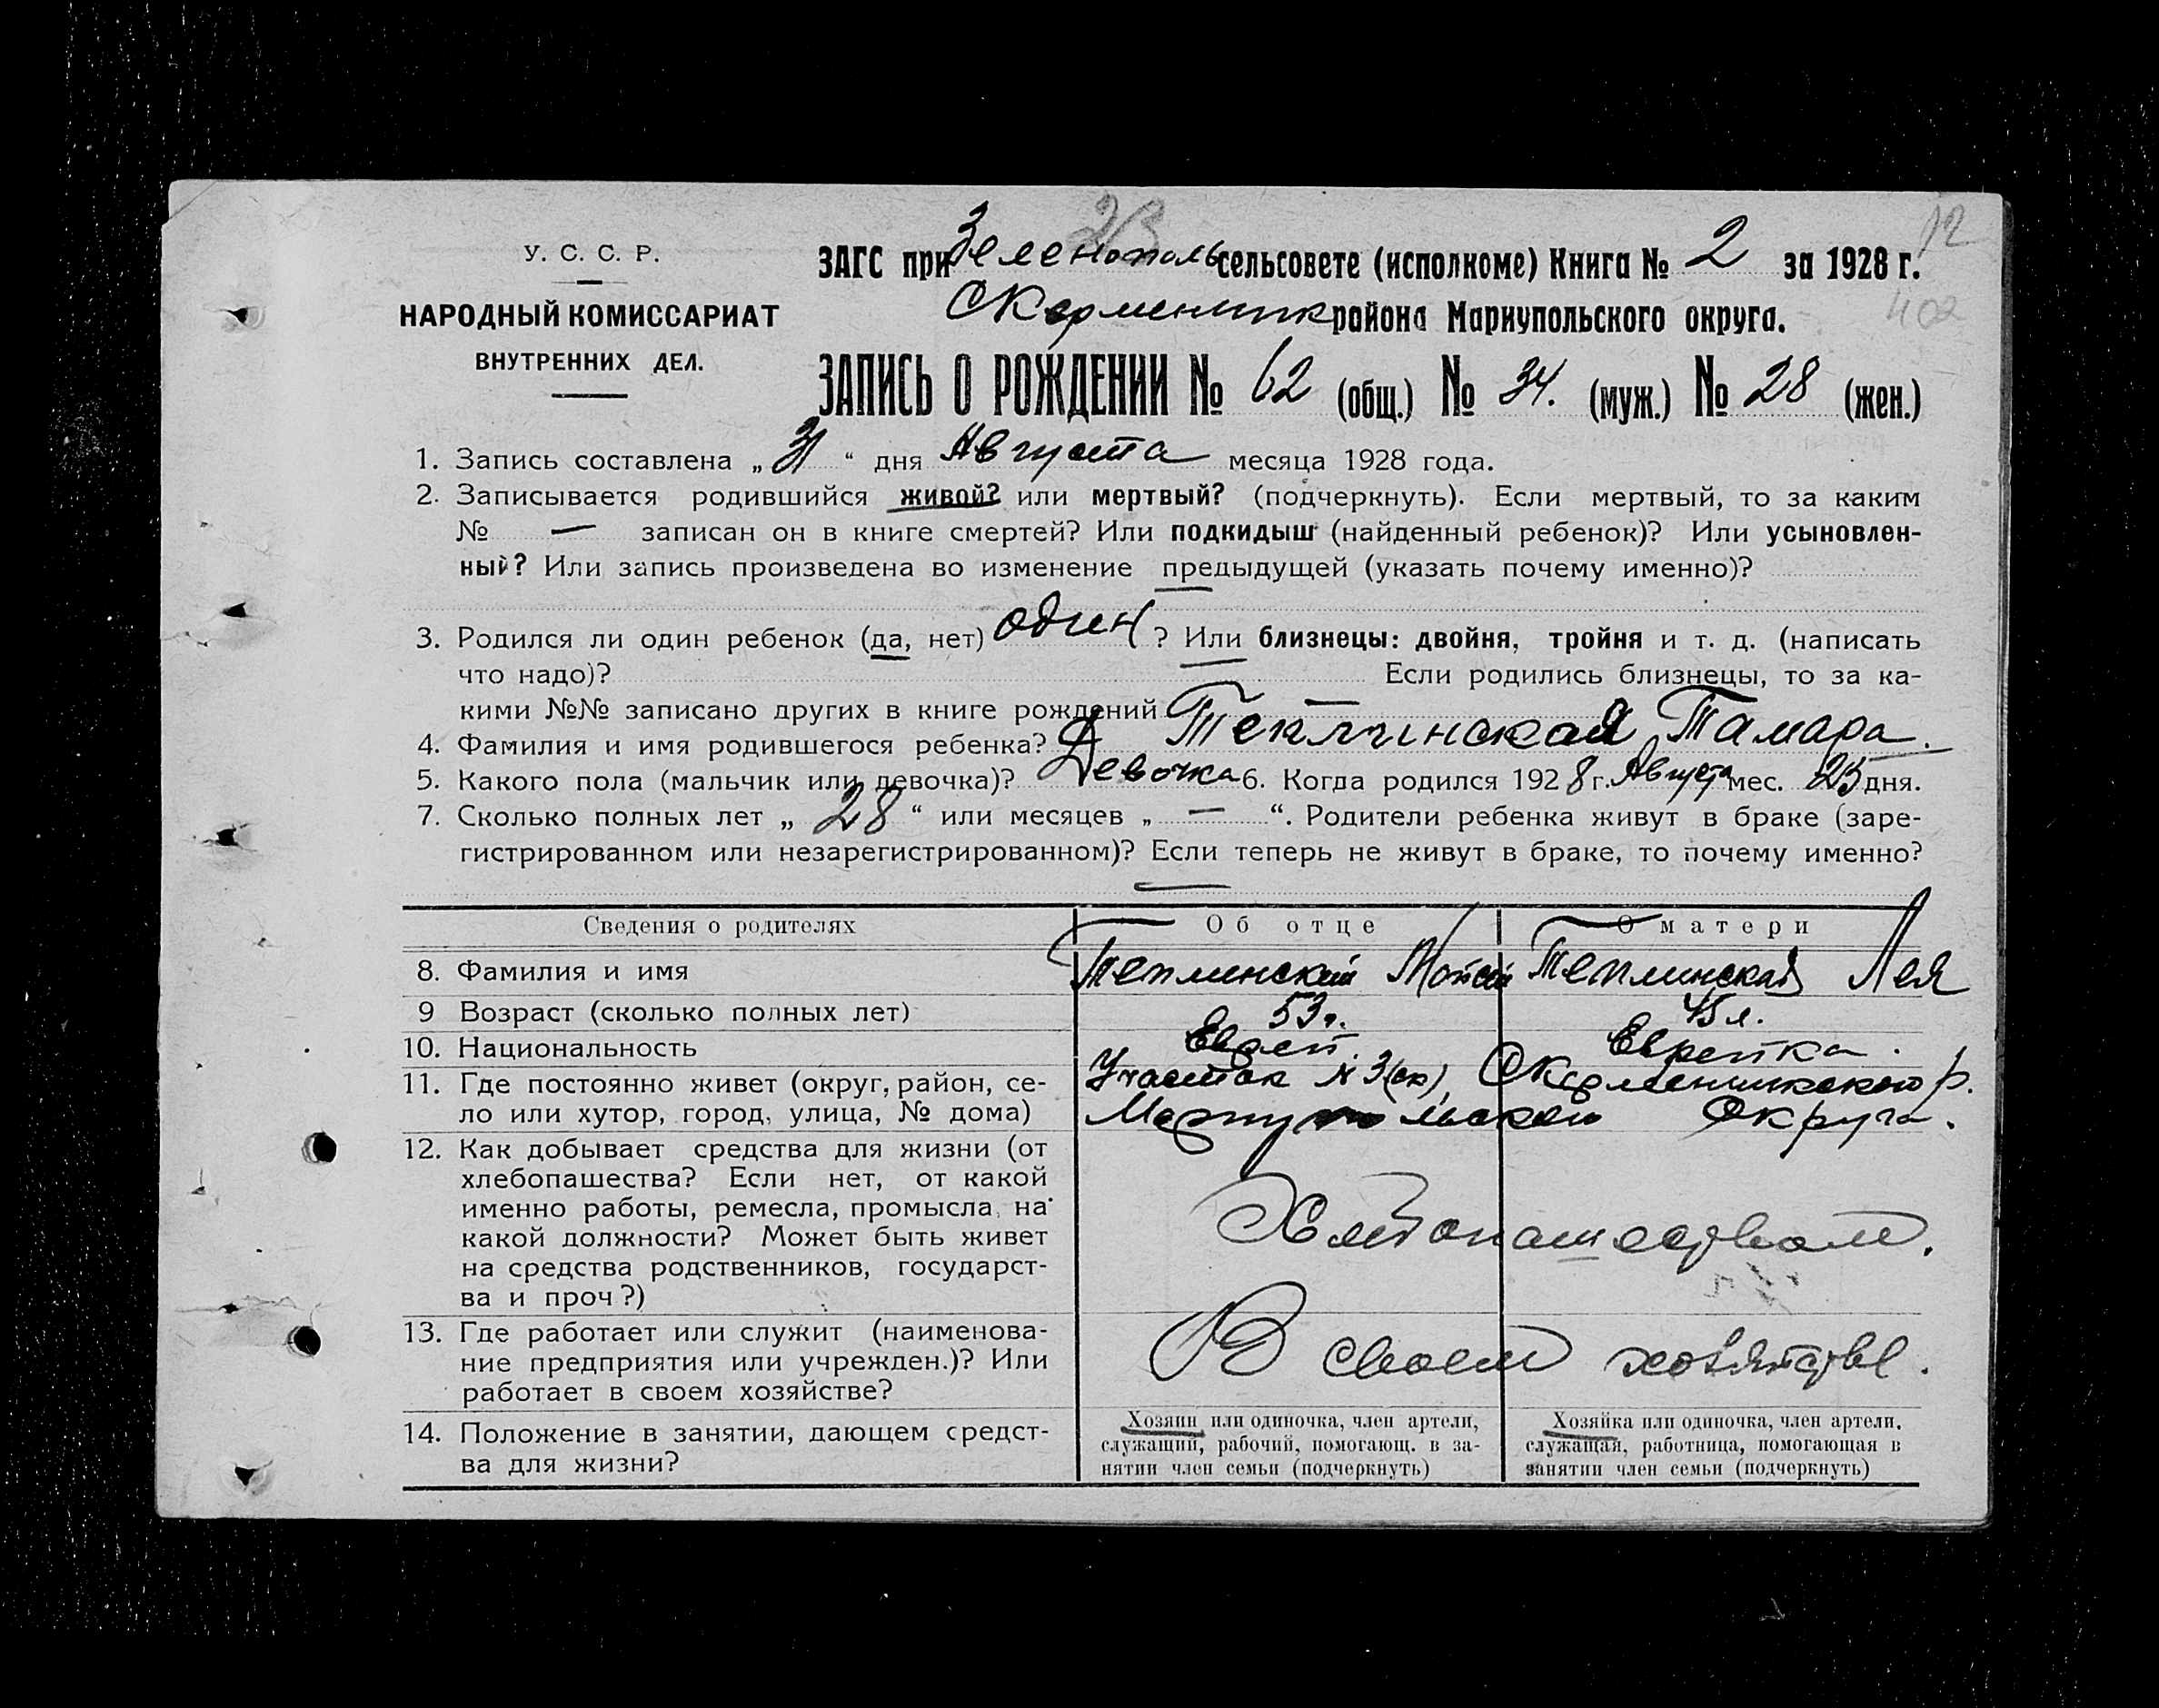 23
12
У. С. С. Р.
НАРОДНЫЙ КОМИССАРИАТ
ВНУТРЕННИХ ДЕЛ.
ЗАГС при Зеленополь сельсовете (исполкоме) Книга № 2 за 1928 г.
402
района Мариупольского округа.
ЗАПИСЬ О РОЖДЕНИИ № 62 (общ.) № 34. (муж.) № 28 (жен.)
1. Запись составлена „ 31 “ дня Августа месяца 1928 года.
2. Записывается родившийся живой? или мертвый? (подчеркнуть). Если мертвый, то за каким
№ — записан он в книге смертей? Или подкидыш (найденный ребенок)? Или усыновлен-
ный? Или запись произведена во изменение предыдущей (указать почему именно)?
3. Родился ли один ребенок (да, нет) один ? Или близнецы: двойня, тройня и т. д. (написать
что надо)? — Если родились близнецы, то за ка-
кими №№ записано других в книге рождений —
4. Фамилия и имя родившегося ребенка? Теплинская Тамара.
5. Какого пола (мальчик или девочка)? Девочка 6. Когда родился 1928 г. Августа мес. 25 дня.
7. Сколько полных лет „ 28 “ или месяцев „ — “. Родители ребенка живут в браке (заре-
гистрированном или незарегистрированном)? Если теперь не живут в браке, то почему именно?
—
Сведения о родителях Об отце О матери
8. Фамилия и имя Теплинский Мойсей Теплинская Лея
9 Возраст (сколько полных лет) 53 л. 45 л.
10. Национальность Еврей. Еврейка.
11. Где постоянно живет (округ, район, се-
ло или хутор, город, улица, № дома)
Участок № 3 р.
Мариупольского Округа.
12. Как добывает средства для жизни (от
хлебопашества? Если нет, от какой
именно работы, ремесла, промысла, на
какой должности? Может быть живет
на средства родственников, государст-
ва и проч?)
Хлебопашеством.
13. Где работает или служит (наименова-
ние предприятия или учрежден.)? Или
работает в своем хозяйстве?
В своем хозяйстве.
14. Положение в занятии, дающем средст-
ва для жизни?
Хозяин или одиночка, член артели,
служащий, рабочий, помогающ. в за-
нятии член семьи (подчеркнуть)
Хозяйка или одиночка, член артели,
служащая, работница, помогающая в
занятии член семьи (подчеркнуть)